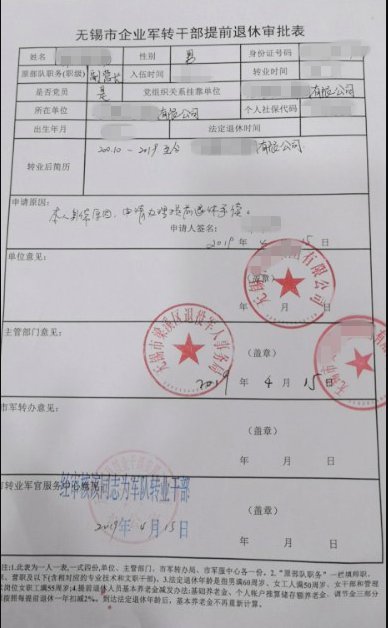 无锡市企业军转干部提前退休审批表
姓名 性别 男 身份证号码
原部队职务(职级) 副营长 入伍时间 转业时间
是否党员 是 党组织关系挂靠单位 有限公司
所在单位 有限公司 个人社保代码
出生年月 法定退休时间
转业后简历 2001.10-2019 在 有限公司
申请原因:
本人身体原因,申请办理提前退休手续。
申请人签名:
2019 年 4 月 15 日
单位意见:
无锡 有限公司
(盖章)
年 月 日
主管部门意见:
无锡市梁溪区退役军人事务局
(盖章)
2019 4 月 15 日
市军转办意见:
(盖章)
年 月 日
市转业军官服务中心
经审核该同志为军队转业干部
(盖章)
2019年4月15日
年 月 日
注:1.此表为一人一表,一式四份,单位、主管部门、市军转办局、市军服中心各一份。2.“原部队职务”一栏填师职、
营职及以下(含相对应的专业技术和文职干部)。3.法定退休年龄是指男满60周岁、女工人满50周岁、女干部和管理
岗位女职工满55周岁;4.提前退休人员基本养老金减发办法:基础养老金、个人账户推算储存额养老金、调节金三部分
按照每提前退休一年扣减2%。到达法定退休年龄后,基本养老金不再重新计算。